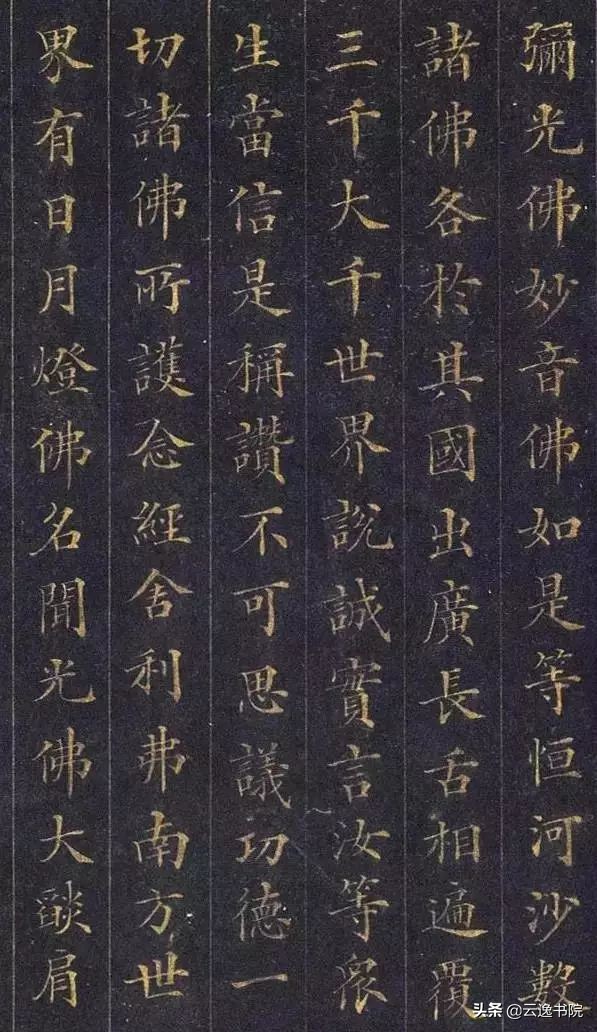 彌光佛妙音佛如是等恒河沙數
諸佛各於其國出廣長舌相遍覆
三千大千世界說誠實言汝等眾
生當信是稱讚不可思議功德一
切諸佛所護念經舍利弗南方世
界有日月燈佛名聞光佛大燄肩
头条@云逸书院